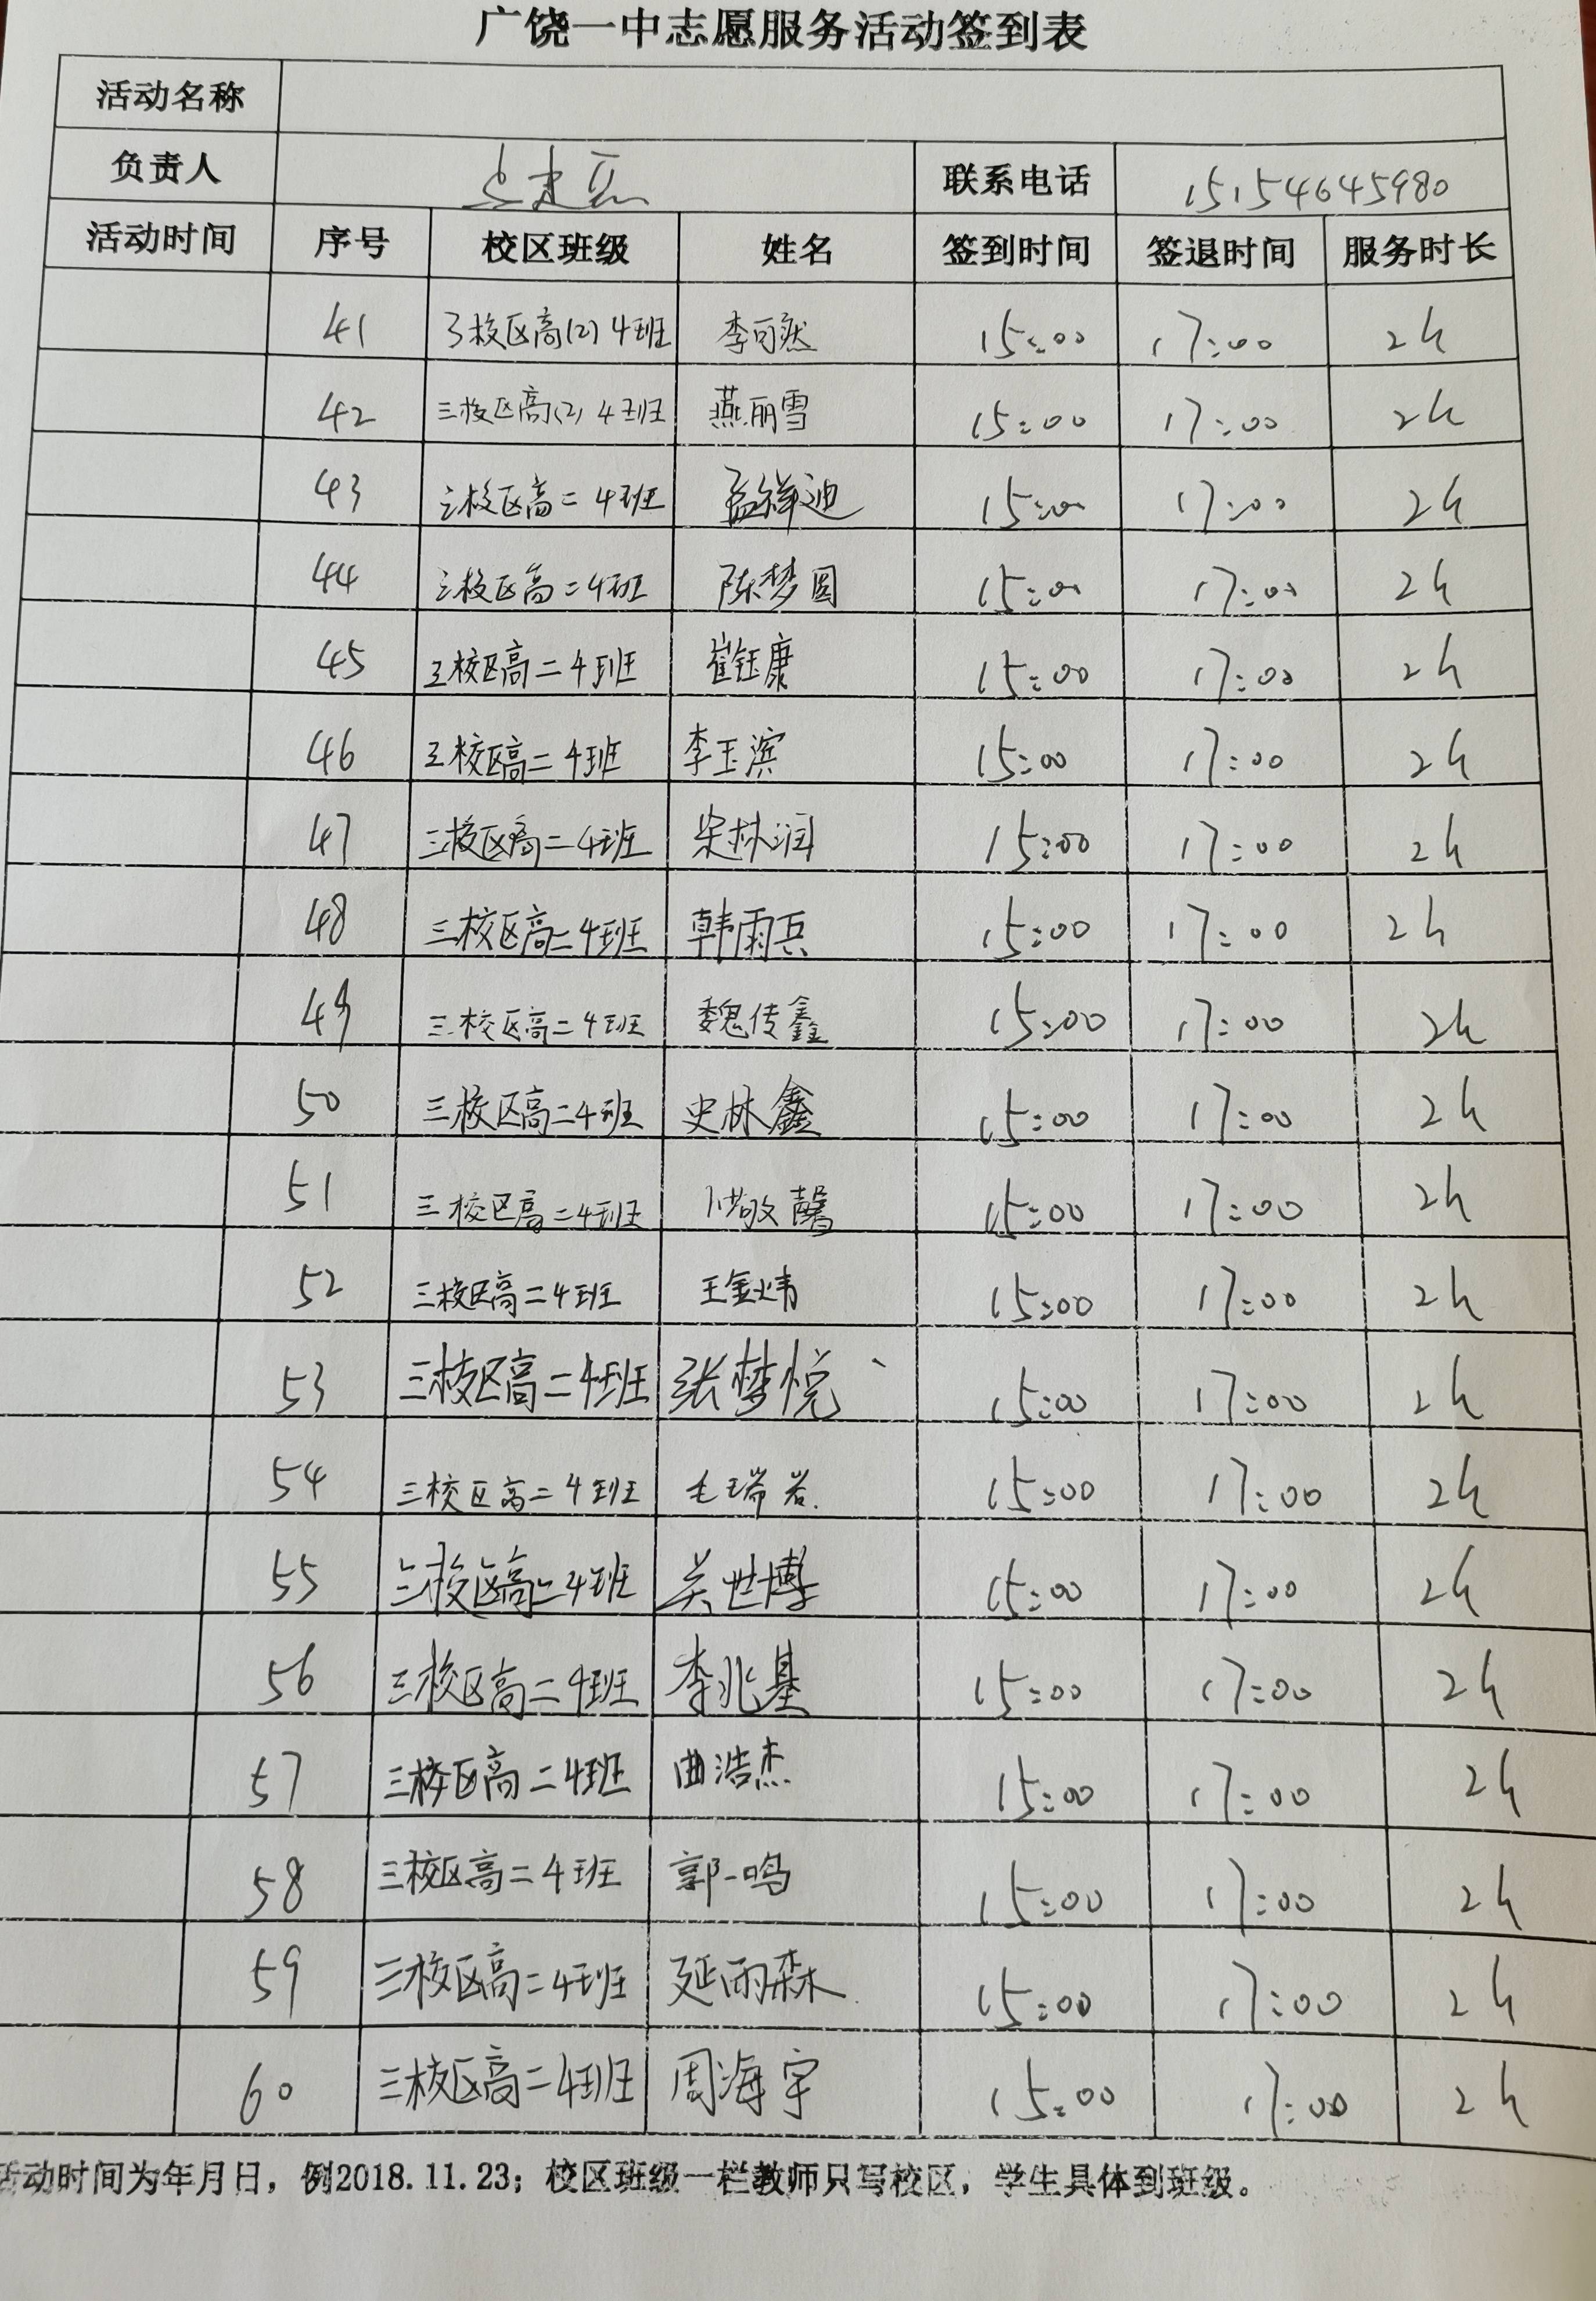 广饶一中志愿服务活动签到表
活动名称
负责人 联系电话 15154645980
活动时间 序号 校区班级 姓名 签到时间 签退时间 服务时长
41 3校区高(2)4班 李可然 15:00 17:00 2h
42 三校区高(2)4班 燕丽雪 15:00 17:00 2h
43 三校区高二4班 孟祥迪 15:00 17:00 2h
44 三校区高二4班 陈梦圆 15:00 17:00 2h
45 三校区高二4班 崔钰康 15:00 17:00 2h
46 三校区高二4班 李玉滨 15:00 17:00 2h
47 三校区高二4班 宋林润 15:00 17:00 2h
48 三校区高二4班 韩雨兵 15:00 17:00 2h
49 三校区高二4班 魏传鑫 15:00 17:00 2h
50 三校区高二4班 史林鑫 15:00 17:00 2h
51 三校区高二4班 洪敬馨 15:00 17:00 2h
52 三校区高二4班 王金炜 15:00 17:00 2h
53 三校区高二4班 张梦悦 15:00 17:00 2h
54 三校区高二4班 毛瑞岩 15:00 17:00 2h
55 三校区高二4班 吴世博 15:00 17:00 2h
56 三校区高二4班 李兆基 15:00 17:00 2h
57 三校区高二4班 曲浩杰 15:00 17:00 2h
58 三校区高二4班 郭一鸣 15:00 17:00 2h
59 三校区高二4班 延雨森 15:00 17:00 2h
60 三校区高二4班 周海宇 15:00 17:00 2h
活动时间为年月日，例2018.11.23；校区班级一栏教师只写校区，学生具体到班级。